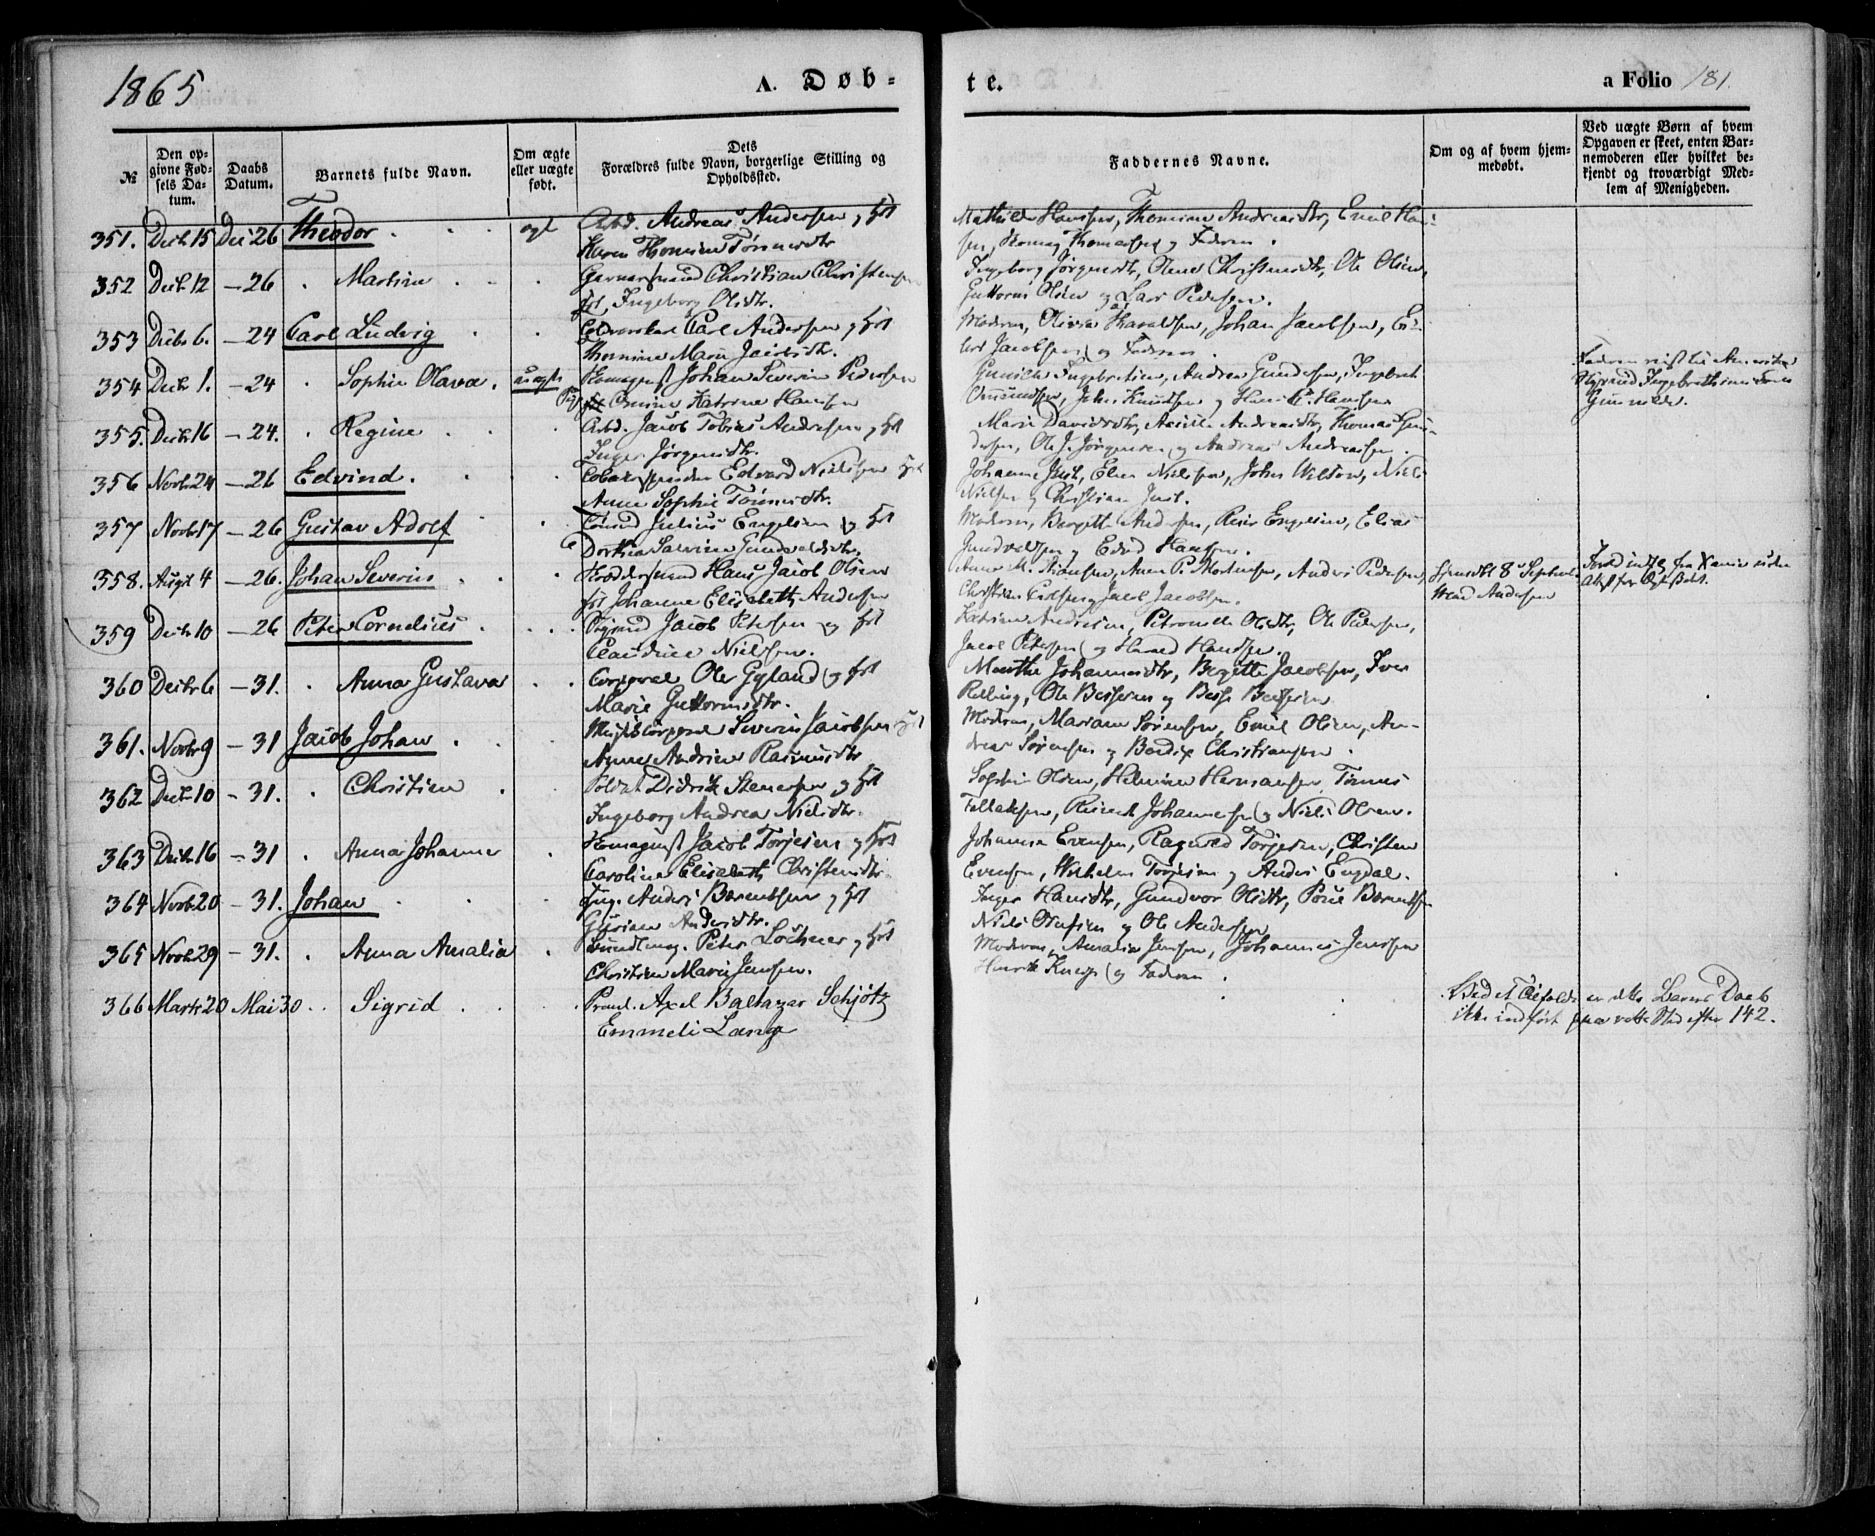 1865
A. Døb-
te.
a Folio 181.
№
Den opgivne Fødsels Datum.
Daabs Datum.
Barnets fulde Navn.
Om ægte eller uægte født.
Dets Forældres fulde Navn, borgerlige Stilling og Opholdssted.
Faddernes Navne.
Om og af hvem hjemmedøbt.
Ved uægte Børn af hvem Opgaven er skeet, enten Barnemoderen eller hvilket bekjendt og troværdigt Medlem af Menigheden.
351. Decb 15 Dec 26 Theodor ægt Arbd. Andreas Andersen og Hst
Karen Thomine Tønnesdtr
Mathilde Hansen, Thomine Andreasdtr, Emil Hansen, Thomas Thomassen og Faderen.
352 Decb 12 — 26 Martin Garversvend Christian Christensen
Hst Ingeborg Olsdtr.
Ingeborg Jørgensdtr, Olene Christensdtr, Ole Olsen,
Guttorm Olsen og Lars Pedersen.
353 Decbr 6. — 24 Carl Ludvig Carl Andersen og Hst
Thomine Marie Jacobsdtr.
Moderen, Olivia Haraldsen, Johan Jacobsen,
Jacobsen og Faderen.
354 Decb 1. — 24 Sophie Olava. uægte Johan Severin Pedersen
Pige Katrine Hansen
Gunilde Ingebretsen, Andrea Gundersen, Ingebret
Omundsen, John Knudsen og Hansen
Faderen reist til Amerika
355. Decb 16 — 24. Regine Arbd. Jacob Tobias Andersen og Hst
Inger Jørgensdtr.
Marie Davidsdtr, Andreasdtr, Thomas
Ole J. Jørgensen og Andreas Andreassen.
356 Novb 24 — 26 Edvind Edvard Nielsen Hst
Anne Sophie Tønnesdtr.
Johanne Juel, Elen Nielsen, John Wiltow, Niels
Nielsen og Christian Juel.
357 Novb 17 — 26 Gustav Adolf Julius Engelsen og Hst
Dorthea Gundvaldsdtr.
Moderen, Bergitte Andersen, Engelsen, Elias
Gundvaldsen og Edvd Hansen.
358. Augt 4 — 26. Johan Severin Hans Jacob Olsen
Hst Johanne Elisabeth Andersen
Anne M. Hansen, Anne P. Mortensen, Anders Pedersen,
Christian og Jacob Jacobsen.
Hjemdbt 8 Septemb
Mad Andersen
359 Decb 10 — 26 Peter Cornelius Jacob Petersen og Hst
Claudine Nielsen.
Katrine Andersen, Petronelle Olsdtr, Ole Pedersen,
Jacob Petersen og Harald Hansen.
360 Decbr 6 — 31. Anna Gustava Corporal Ole Gyland og Hst
Marie Guttormsdtr.
Marthe Johannesdtr, Bergitte Jacobsen, Iver
Ole Bessesen og Besse Bessesen
361. Novbr 9 — 31 Jacob Johan Severin Jacobsen Hst
Anne Andrine Rasmusdtr
Moderen, Mariane Sørensen, Emil Olsen, Andreas Sørensen og Bendix Christiansen.
362 Decb 10 — 31. Christien Soldat Didrik Stenersen og Hst
Ingeborg Andrea Nielsdtr.
Sophie Olsen, Helmine Hermansen, Tønnes
Tellaksen, Johannesen og Niels Olsen.
363 Decb 16 — 31 Anna Johanne Jacob Torjesen og Hst
Caroline Elisabeth Christensdtr.
Johanna Evensen, Ragnild Torjesen, Christen
Evensen, Wilhelm Torjesen og Anders Engdal.
364 Novb 20 — 31. Johan Anders Bærentsen og Hst
Gurine Andersdtr.
Inger Hansdtr, Gundvor Olsdtr, Poul Bærentsen
Niels Olufsen og Ole Andersen
365 Novb 29 — 31. Anna Amalia Peter Lochner og Hst
Christine Marie Jensen.
Moderen, Amalia Jensen, Johannes Jensen
Henrik og Faderen.
366 Marts 20 Mai 30 Sigrid Axel Baltazar Schjøtz
Emmeli Lange
Ved et Tilfælde er dette Barns Daab
ikke indført paa rette Sted efter 142.